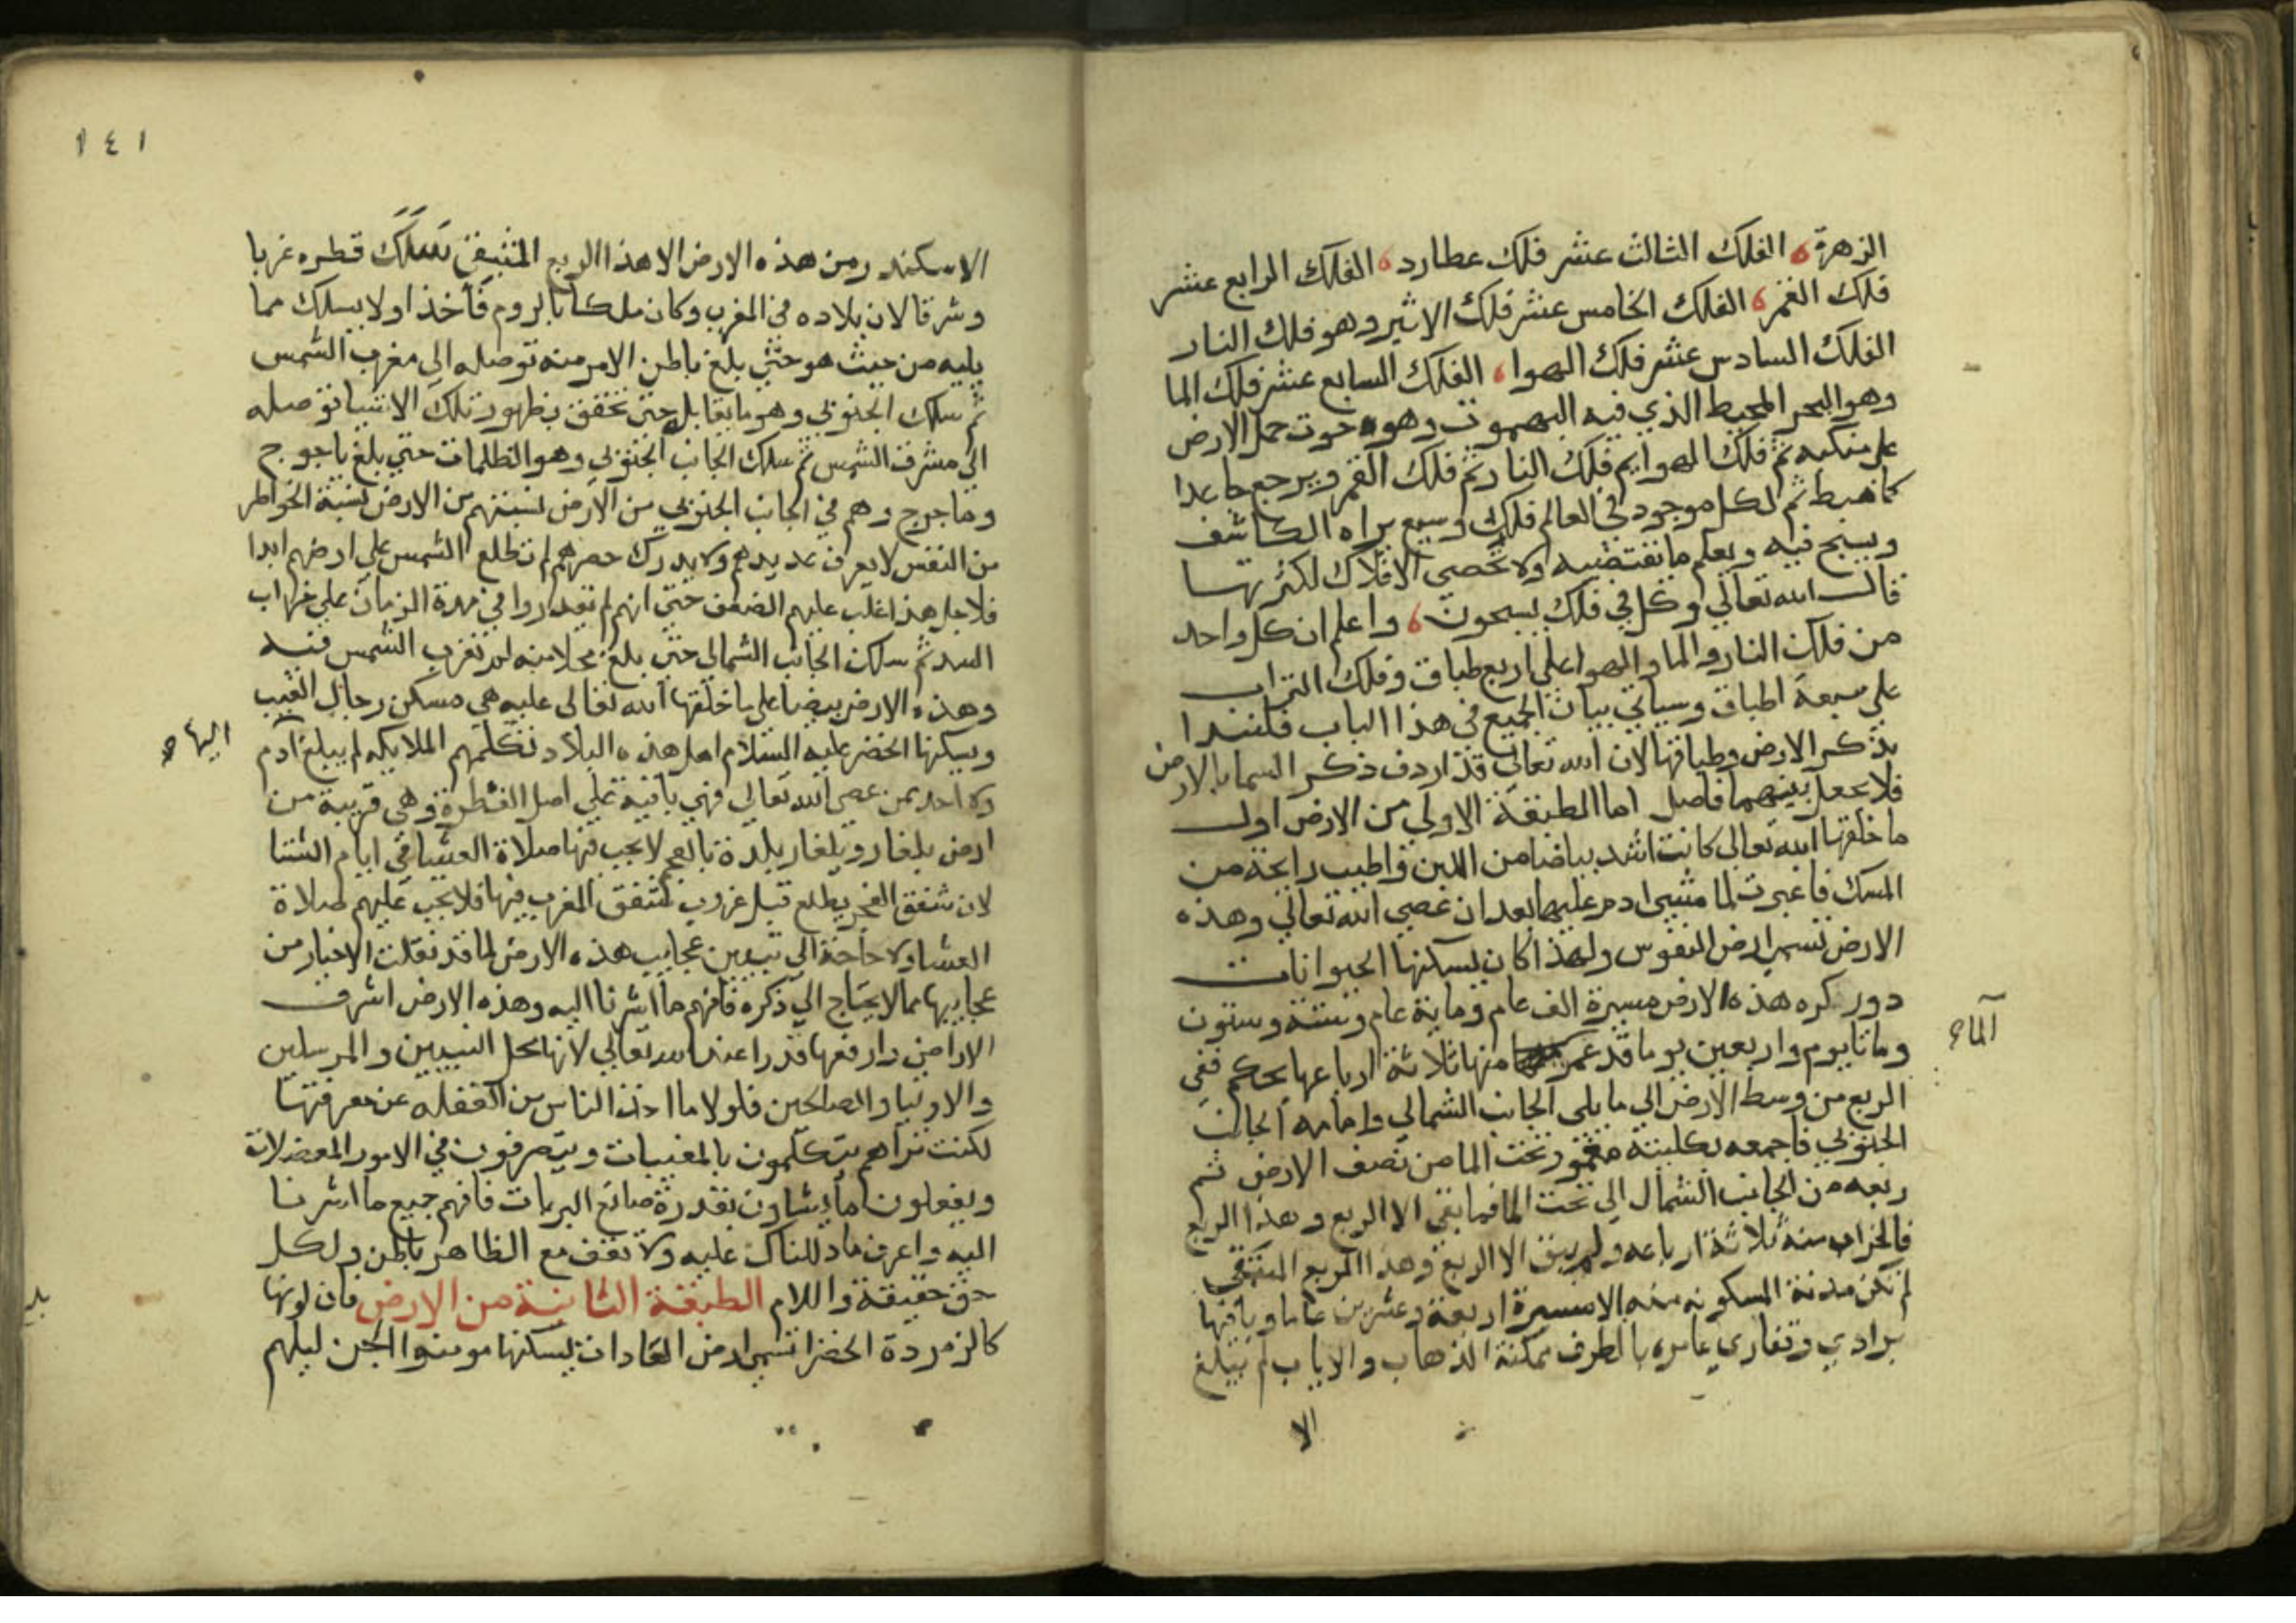 الزهرة الفلك الثالث عشر فلك عطارد الفلك الرابع عشر
فلك القمر الفلك الخامس عشر فلك الاثير وهو فلك النار
الفلك السادس عشر فلك الهوا الفلك السابع عشر فلك الما
وهو البحر المحيط الذي فيه البهموت وهو حوت حمل الارض
على منكبه ثم فلك الهوا ثم فلك النار ثم فلك القمر ويرجع صاعدا
كما هبط ثم لكل موجود في العالم فلك وسيع يراه الكاشف
ويسبح فيه ويعلم ما تقتضيه ولا تحصي الافلاك لكثرتها
قال الله تعالي وكل في فلك يسبحون واعلم ان كل واحد
من فلك النار والما والهوا على اربع طباق وفلك التراب
على سبعة اطباق وسياتي بيان الجميع في هذا الباب فلنبدا
بذكر الارض وطباقها لان الله تعالى قد اردف ذكر السما بالارض
فلا نجعل بينهما فاصل اما الطبقة الاولي من الارض اول
ما خلقها الله تعالى كانت اشد بياضا من اللبن واطيب رايحة من
المسك فاغبرت لما مشى ادم عليها بعد ان عصي الله تعالي وهذه
الارض تسمى ارض النفوس ولهذا كان يسكنها الحيوانات
دور كره هذه الارض مسيرة الف عام وماية عام وستة وستون
الما
وماتا يوم واربعين يوما قد غمر منها ثلاثة ارباعها بحكم ففي
الربع من وسط الارض الي ما يلى الجانب الشمالي واما مه الجانب
الجنوبي فاجمعه بكليته مغمور تحت الما من نصف الارض ثم
ربعه من الجانب الشمال الي تحت الما فما بقي الا الربع وهذا الربع
فالخراب منه ثلاثة ارباعه ولم يبق الا الربع وهذا الربع المتبقي
لم تكن مدنة المسكونه منه الا مسيرة اربعة وعشرين عاما وباقيها
براري وقفاري عامره بالطرف ممكنة الذهاب والاياب لم يبلغ
الا
١٤١
الاسكندر من هذه الارض الا هذا الربع المتبقي سلك قطره غربا
وشرقا لان بلاده في المغرب وكان ملكا بالروم فاخذ اولا يسلك مما
يليه من حيث هو حتى بلغ باطن الامر منه توصله الي مغرب الشمس
ثم سلك الجنوبي وهو ما يقابله حتى تحقق بظهور تلك الاشيا توصله
الي مشرق الشمس ثم سلك الجانب الجنوبي وهو الظلمات حتى بلغ ياجوج
وماجوج وهم في الجانب الجنوبي من الارض نسبتهم من الارض نسبة الخواطر
من النفس لا يعرف عديدهم ولا يدرك حصرهم لم تطلع الشمس علي ارضهم ابدا
فلاجل هذا غلب عليهم الضعف حتى انهم لم يقدروا في مدة الزمان علي خراب
السد ثم سلك الجانب الشمالي حتى بلغ محلا منه لم تغرب الشمس فيه
وهذه الارض بيضا على ما خلقها الله تعالى عليه هي مسكن رجال الغيب
اليها
ويسكنها الخضر عليه السلام اهل هذه البلاد تكلمهم الملايكه لم يبلغ آدم
ولا احد ممن عصي الله تعالي فهي باقية على اصل الفطرة وهى قريبة من
ارض بلغار وبلغار بلدة بالعجم لا يجب فيها صلاة العشا في ايام الشتا
لان شفق الفجر يطلع قبل غروب شفق المغرب فيها فلا يجب عليهم صلاة
العشا ولا حاجة الي تبيين عجايب هذه الارض لما قد نقلت الاخبار من
عجايبها مما لا يحتاج الي ذكره فافهم ما اشرنا اليه وهذه الارض اشرف
الاراضي وارفعها قدرا عند الله تعالي لانها محل النبيين والمرسلين
والاوليا والصالحين فلولا ما اخذ الناس من الغفله عن معرفتها
لكنت تراهم يتكلمون بالمغيبات ويتصرفون في الامور المعضلات
ويفعلون ما يشاون بقدرة صانع البريات فافهم جميع ما اشرنا
اليه واعرف ما دللناك عليه ولا تقف مع الظاهر باطن ولكل
حق حقيقة والسلام الطبقة الثانية من الارض فان لونها
كالزمردة الخضرا تسمى ارض العادات يسكنها مومنوا الجن ليلهم